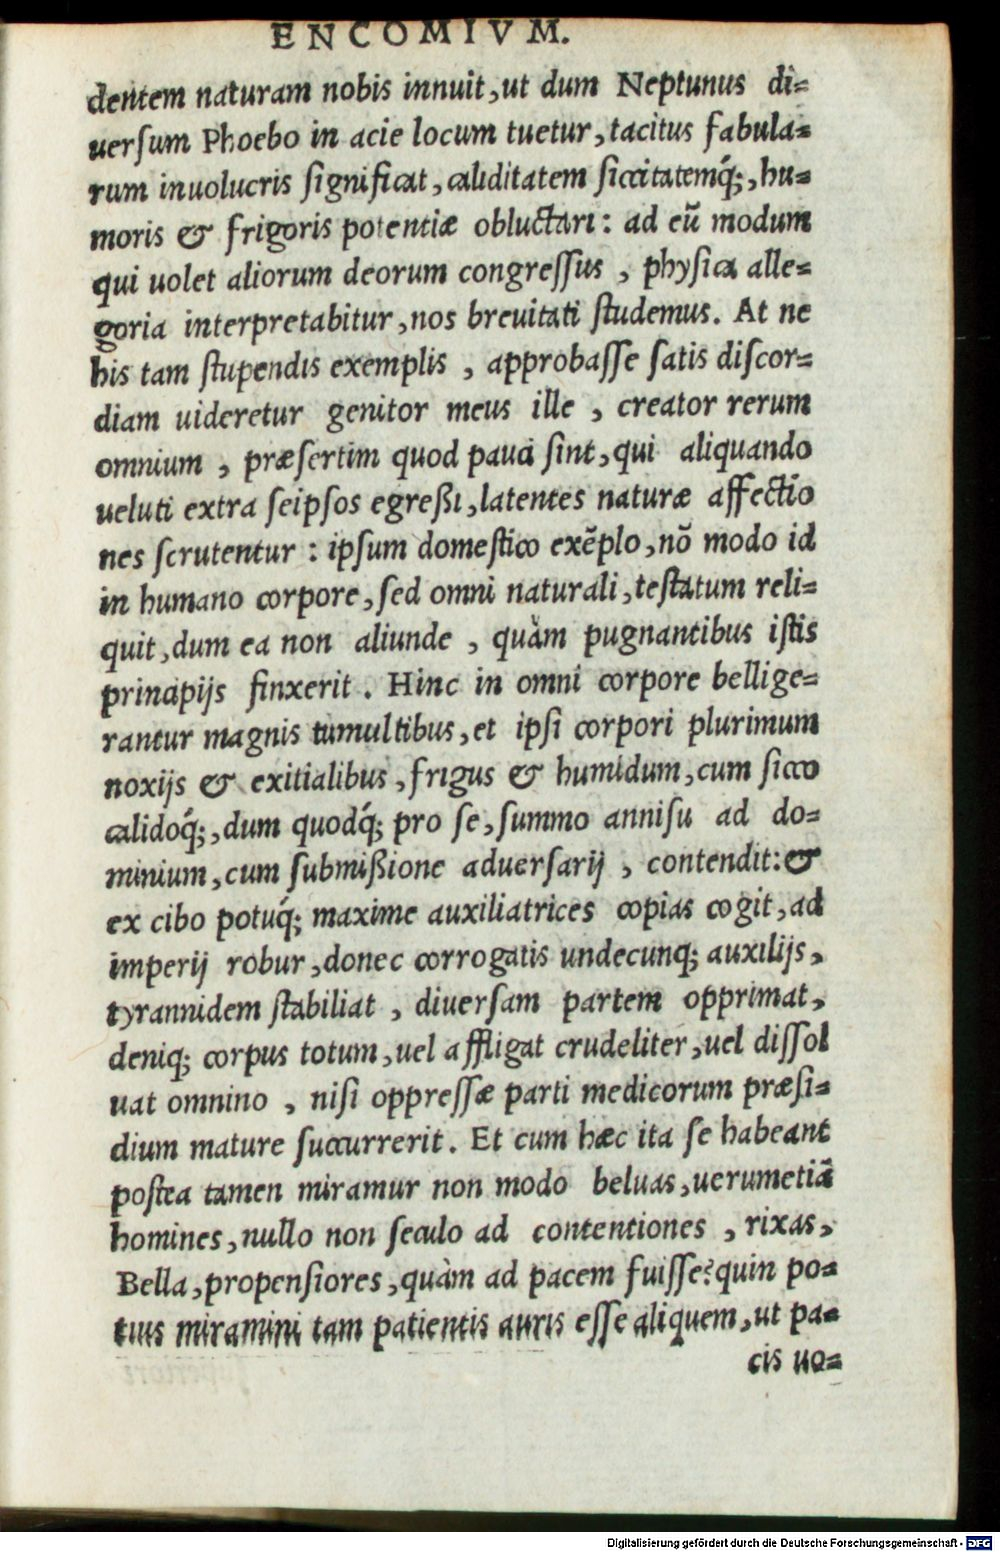 ENCOMIVM.
dentem naturam nobis innuit, ut dum Neptunus di=
uerſum Phoebo in acie locum tuetur, tacitus fabula=
rum inuolucris ſignificat, caliditatem ſiccitatemq́;, hu=
moris & frigoris potentiæ obluctari: ad eũ modum
qui uolet aliorum deorum congreſſus, phyſica alle=
goria interpretabitur, nos breuitati ſtudemus. At ne
his tam ſtupendis exemplis, approbaſſe ſatis diſcor=
diam uideretur genitor meus ille, creator rerum
omnium, præſertim quod pauci ſint, qui aliquando
ueluti extra ſeipſos egreßi, latentes naturæ affectio
nes ſcrutentur: ipſum domeſtico exẽplo, nõ modo id
in humano corpore, ſed omni naturali, teſtatum reli=
quit, dum ea non aliunde, quàm pugnantibus iſtis
principijs finxerit. Hinc in omni corpore bellige=
rantur magnis tumultibus, et ipſi corpori plurimum
noxijs & exitialibus, frigus & humidum, cum ſicco
calidoq́;, dum quodq́; pro ſe, ſummo anniſu ad do=
minium, cum ſubmißione aduerſarij, contendit: &
ex cibo potuq́; maxime auxiliatrices copias cogit, ad
imperij robur, donec corrogatis undecunq; auxilijs,
tyrannidem ſtabiliat, diuerſam partem opprimat,
deniq; corpus totum, uel affligat crudeliter, uel diſſol
uat omnino, niſi oppreſſæ parti medicorum præſi=
dium mature ſuccurrerit. Et cum hæc ita ſe habeant
poſtea tamen miramur non modo beluas, uerumetiã
homines, nullo non ſeculo ad contentiones, rixas,
Bella, propenſiores, quàm ad pacem fuiſſe? quin po=
tius miramini tam patientis auris eſſe aliquem, ut pa=
cis uo=
Digitalisierung gefördert durch die Deutsche Forschungsgemeinschaft - DFG